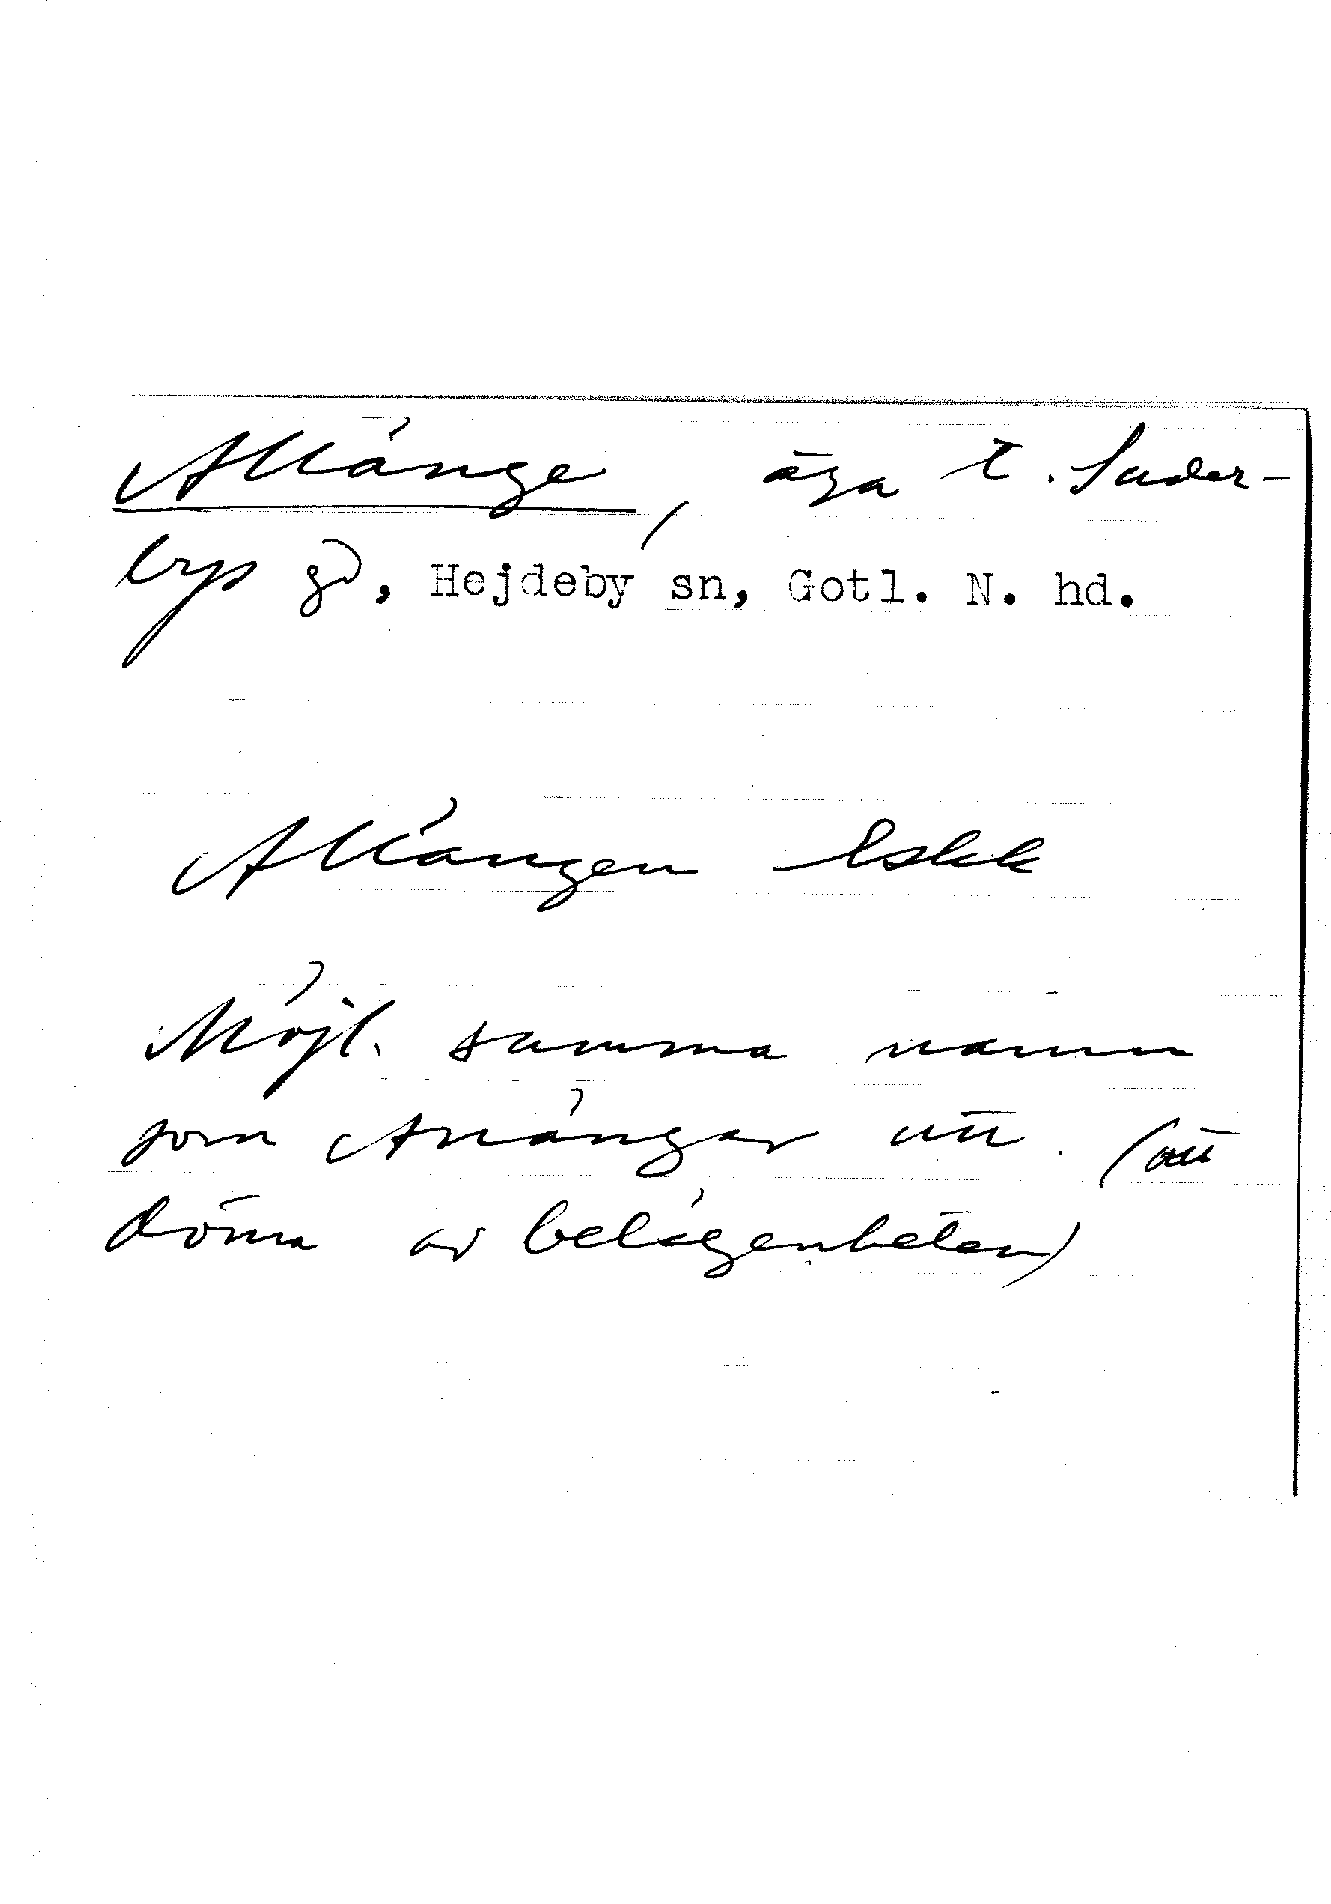 Allänge, äga t. Suder-
bys gd, Hejdeby sn, Gotl. N. hd.
Allängen Eskk
Möjl. samma namn
som Anängar utt. (att
döma av belägenheten)